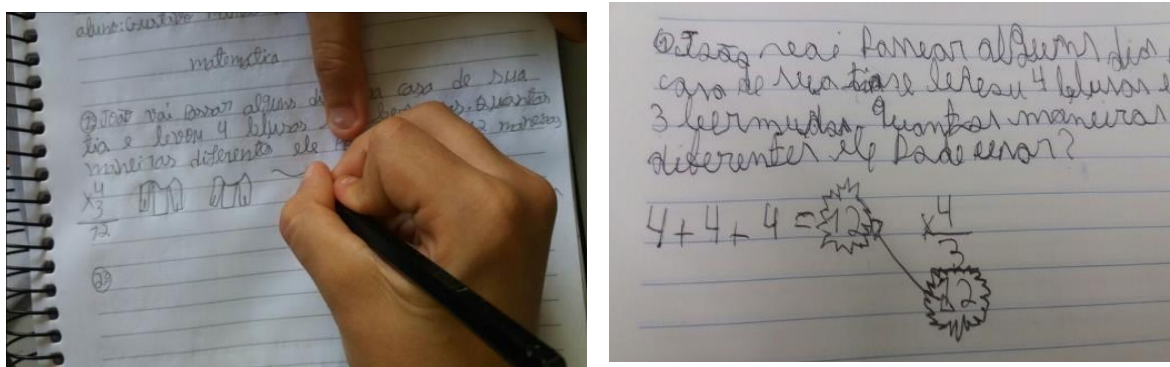 aluno: Gustavo
matematica
① João vai pasar alguns casa de sua
tia e levou 4 blusas Quantas
maneiras diferente ele 12 maneiras
4
×3
12
2º
① João vai passear alguns dia
casa de sua tia e levou 4 blusas e
3 bermudas Quantas maneiras
diferentes ele pode usar?
4+4+4=12 ×4
3
12